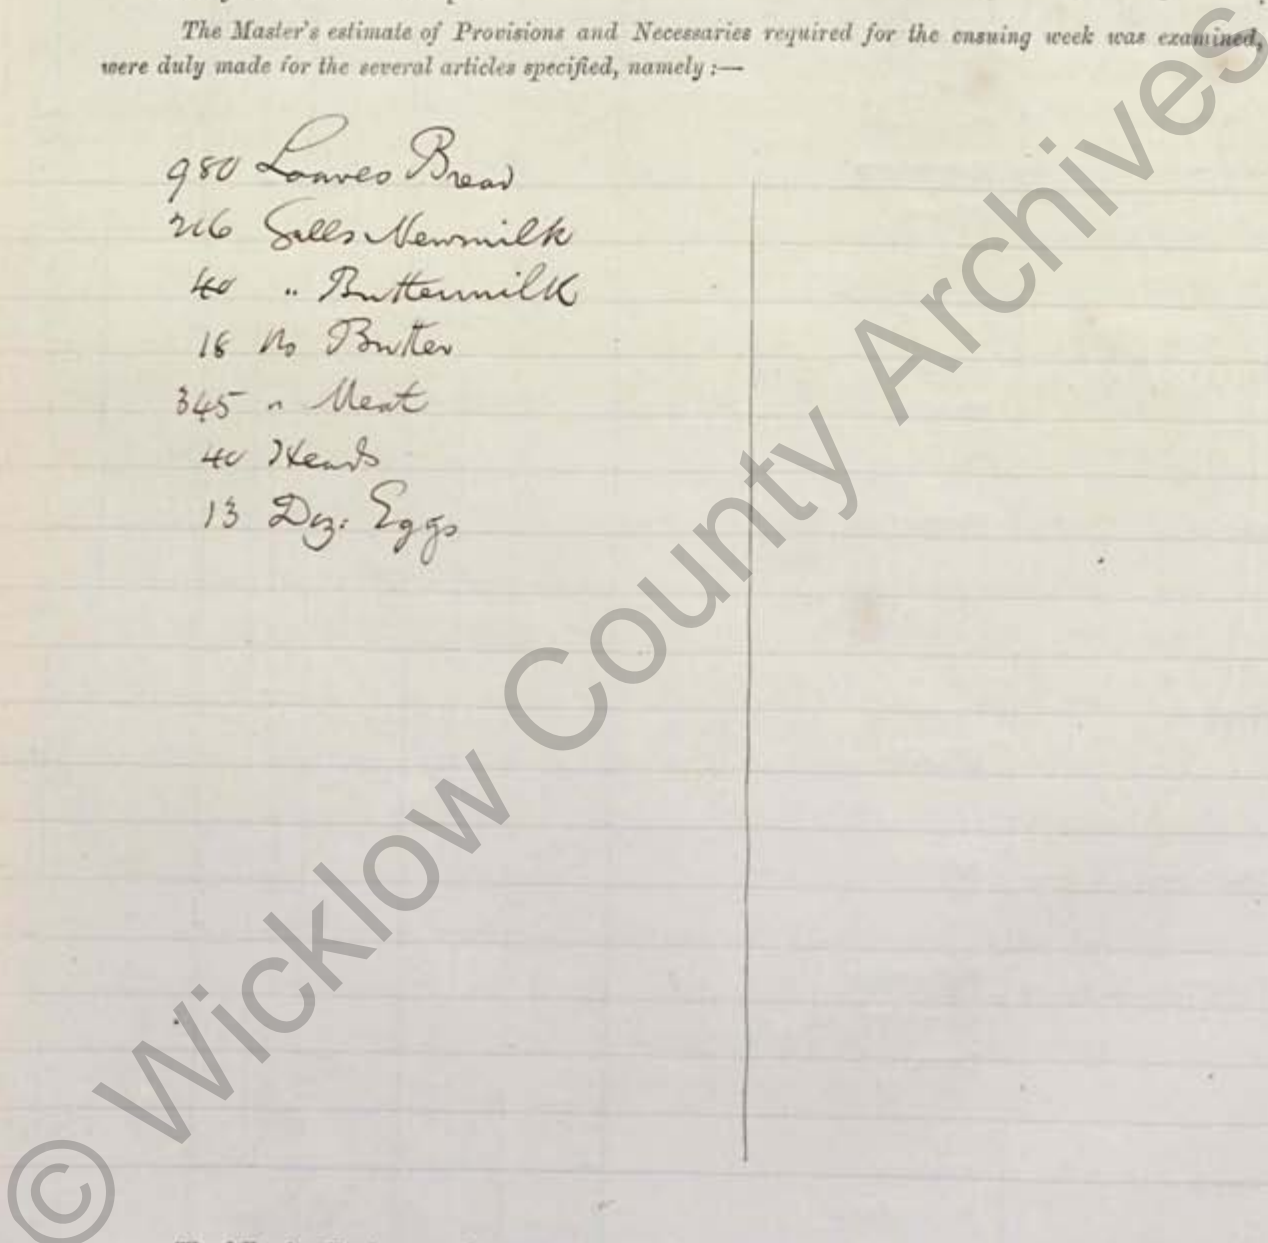 The Master's estimate of Provisions and Necessaries required for the ensuing week was examined,
were duly made for the several articles specified, namely :—
980 Loaves Bread
216 Galls Newmilk
40 " Buttermilk
18 lbs Butter
345 " Meat
40 Heads
13 Doz: Eggs
© Wicklow County Archives